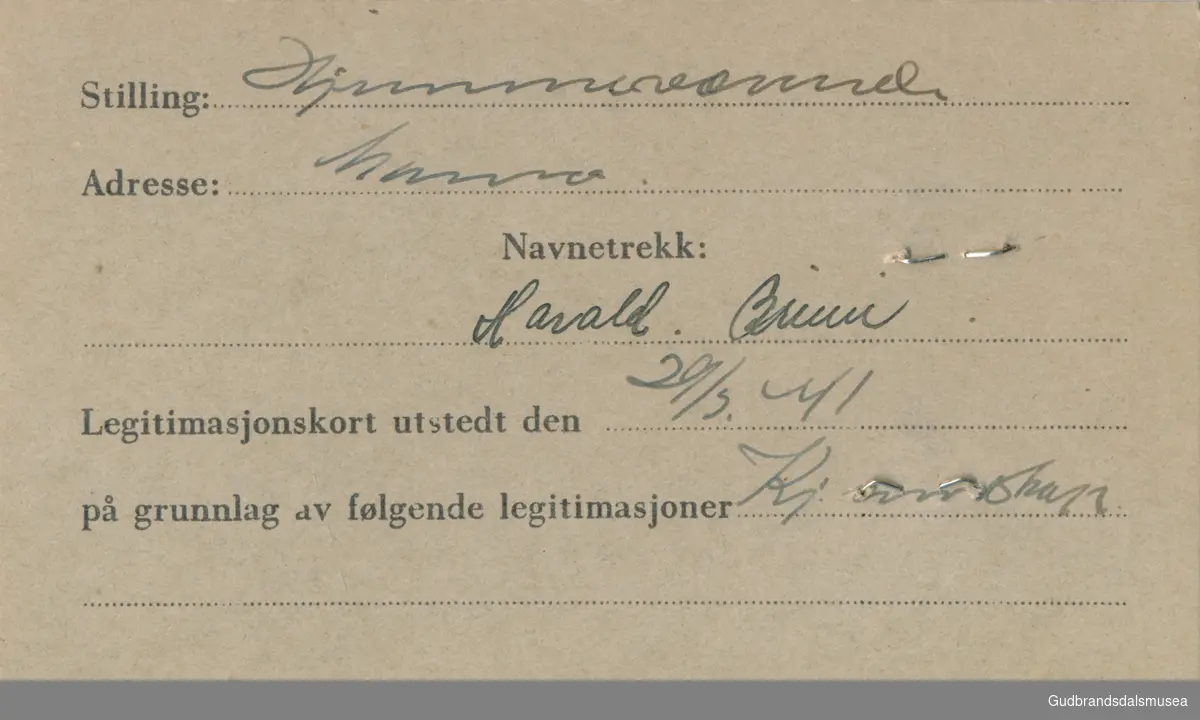 Stilling: Hjemmeværende
Adresse:
Navnetrekk:
Harald. Bruun
Legitimasjonskort utstedt den 29/3. 41
på grunnlag av følgende legitimasjoner Kjennskap
Gudbrandsdalsmusea